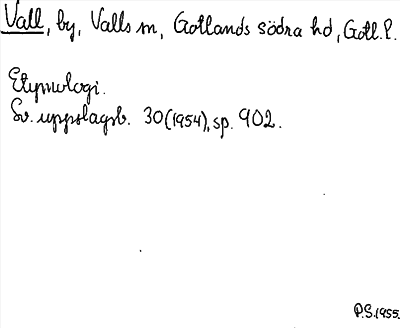 Vall, by, Valls sn, Gotlands södra hd, Gotl. l.
Etymologi.
Sv. uppslagsb. 30 (1954), sp. 902.
P.S. 1955.